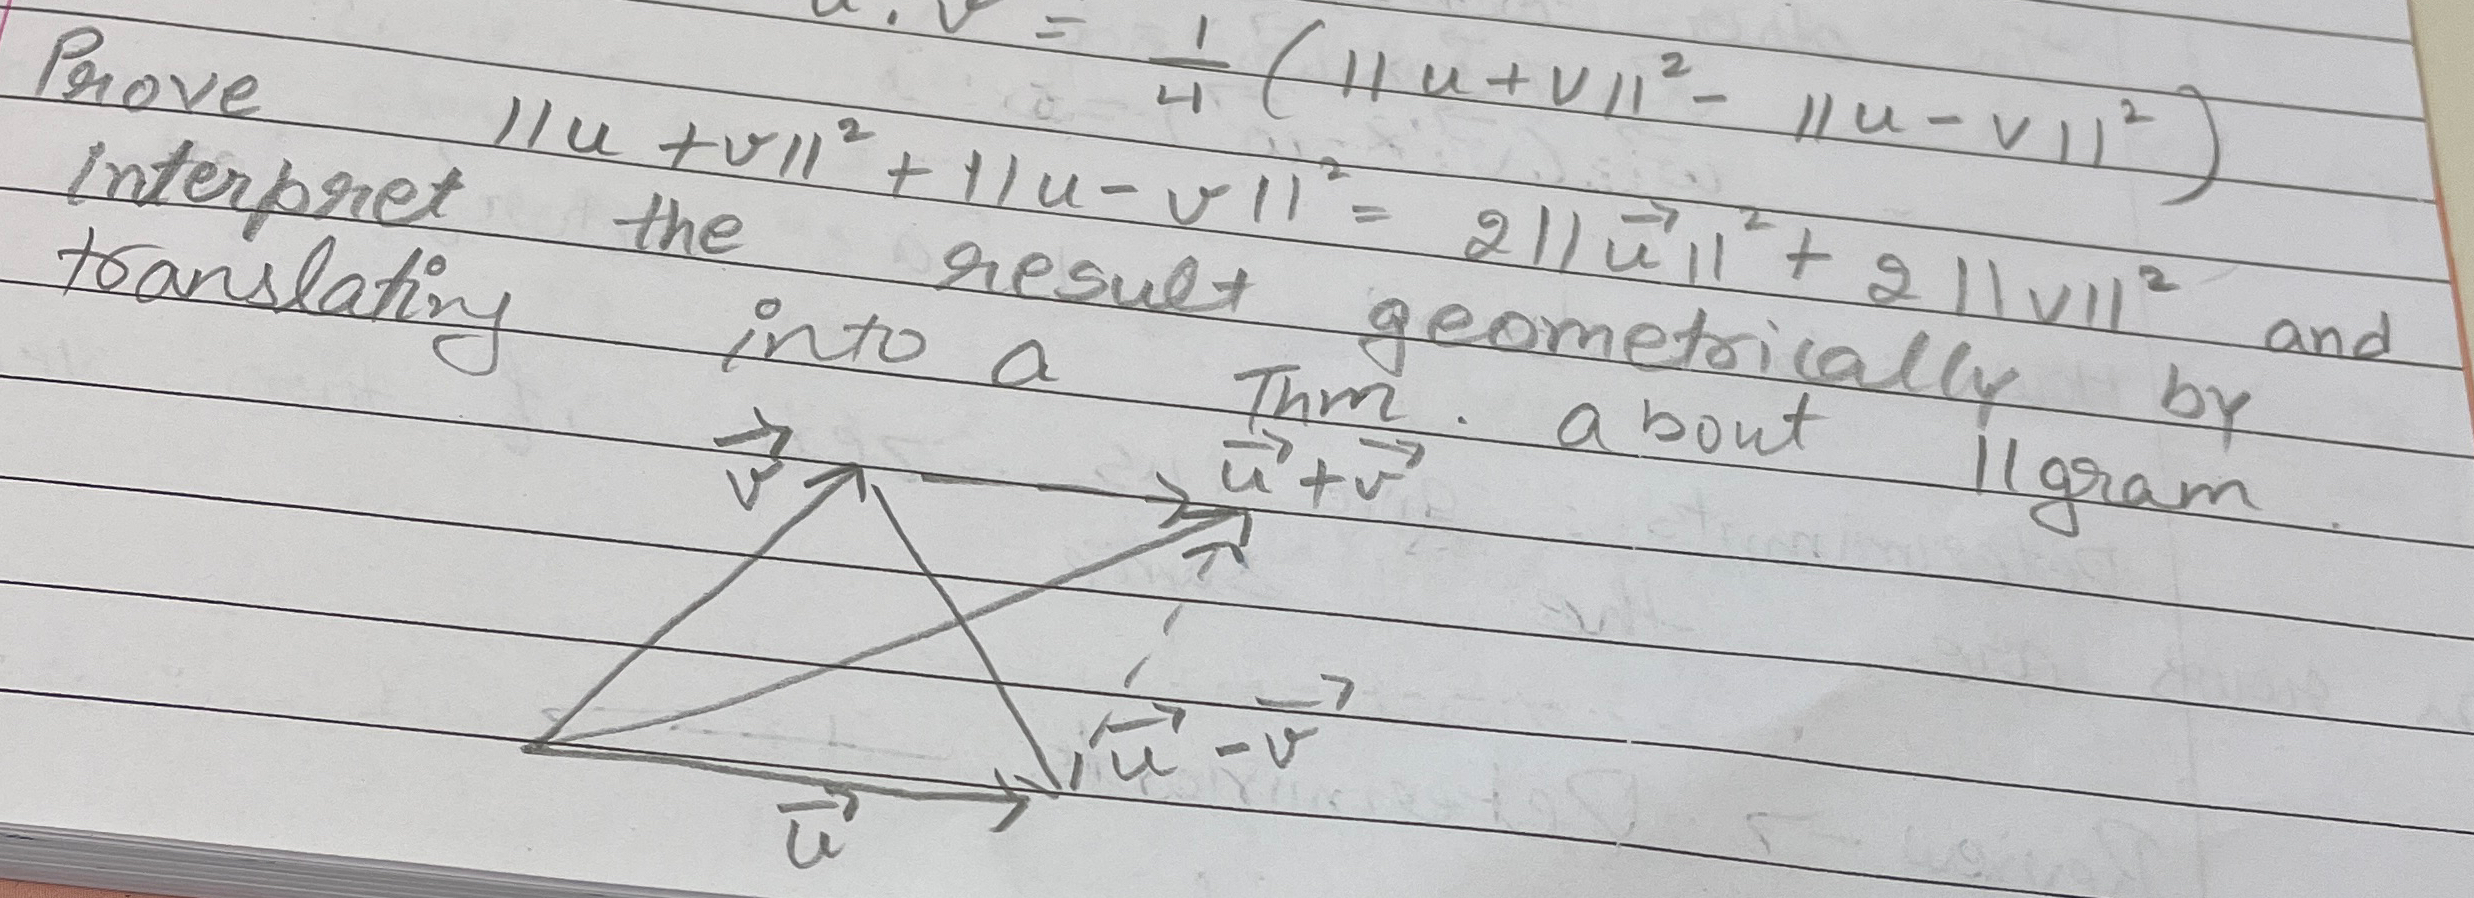 u . v = 1/4 (||u+v||² - ||u-v||²)
Prove ||u+v||² + ||u-v||² = 2||u⃗||² + 2||v||² and
interpret the result geometrically by
translating into a Thm. about ||gram.
v⃗ u⃗+v⃗
u⃗-v⃗
u⃗